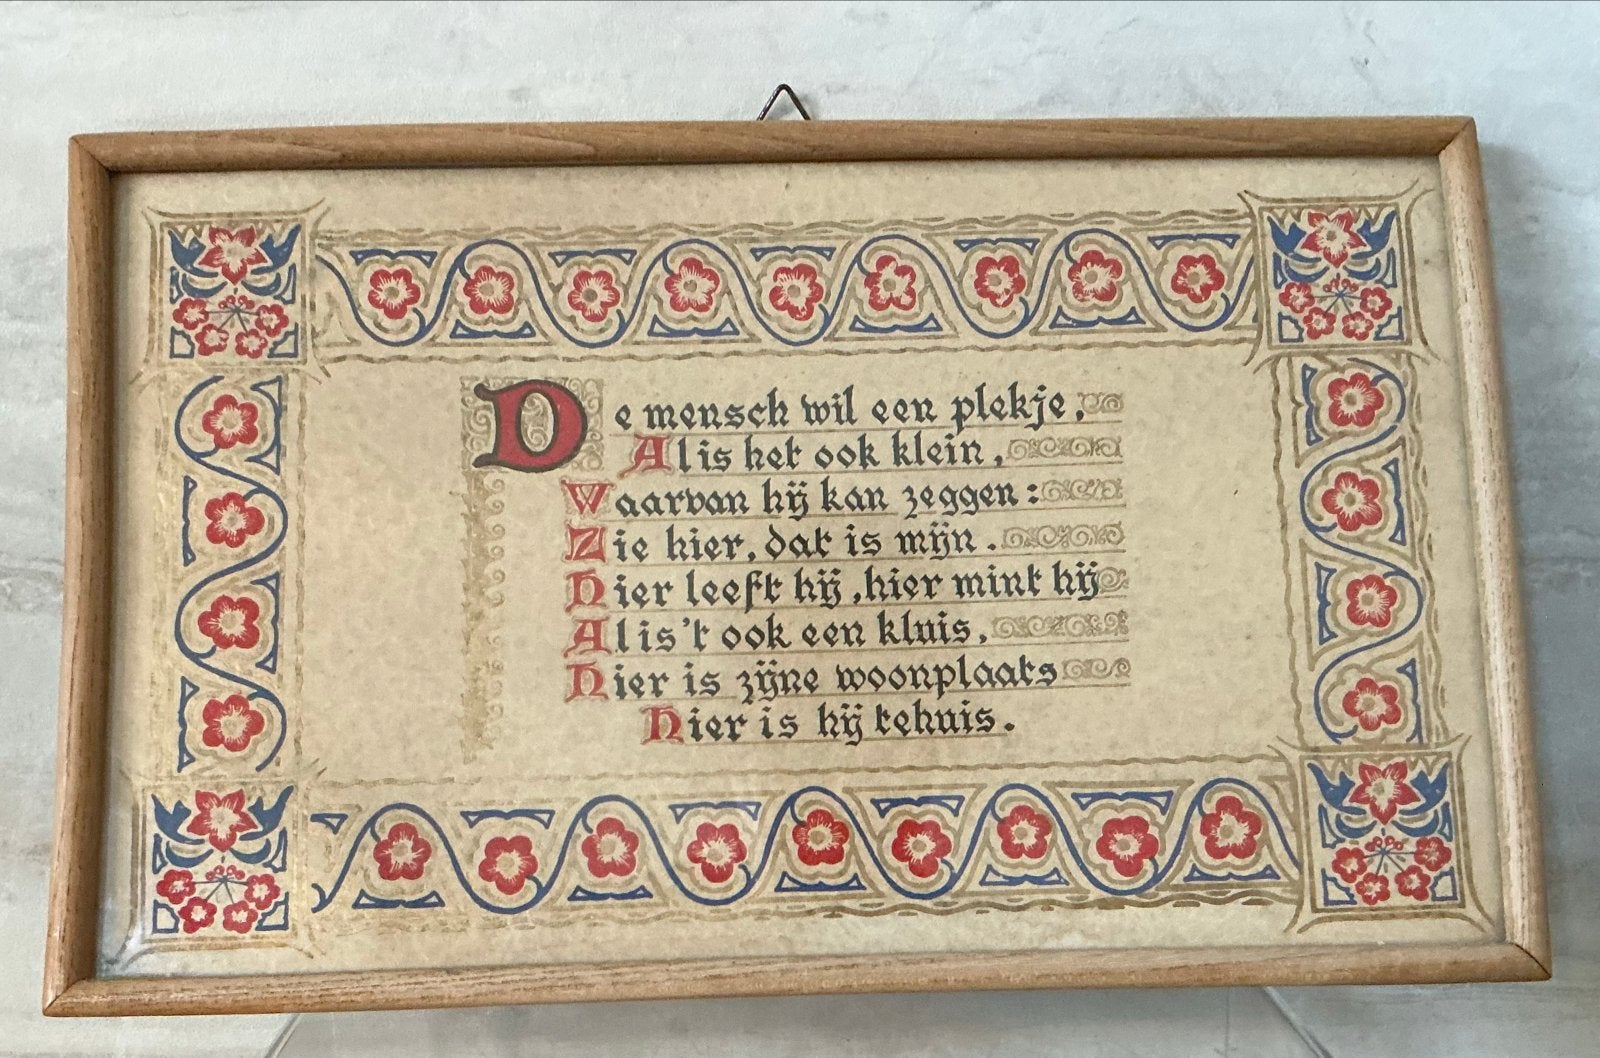 De mensch wil een plekje,
Al is het ook klein,
Waarvan hij kan zeggen:
Zie hier, dat is mijn.
Hier leeft hij, hier mint hij
Al is 't ook een kluis,
Hier is zijne woonplaats
Hier is hij tehuis.